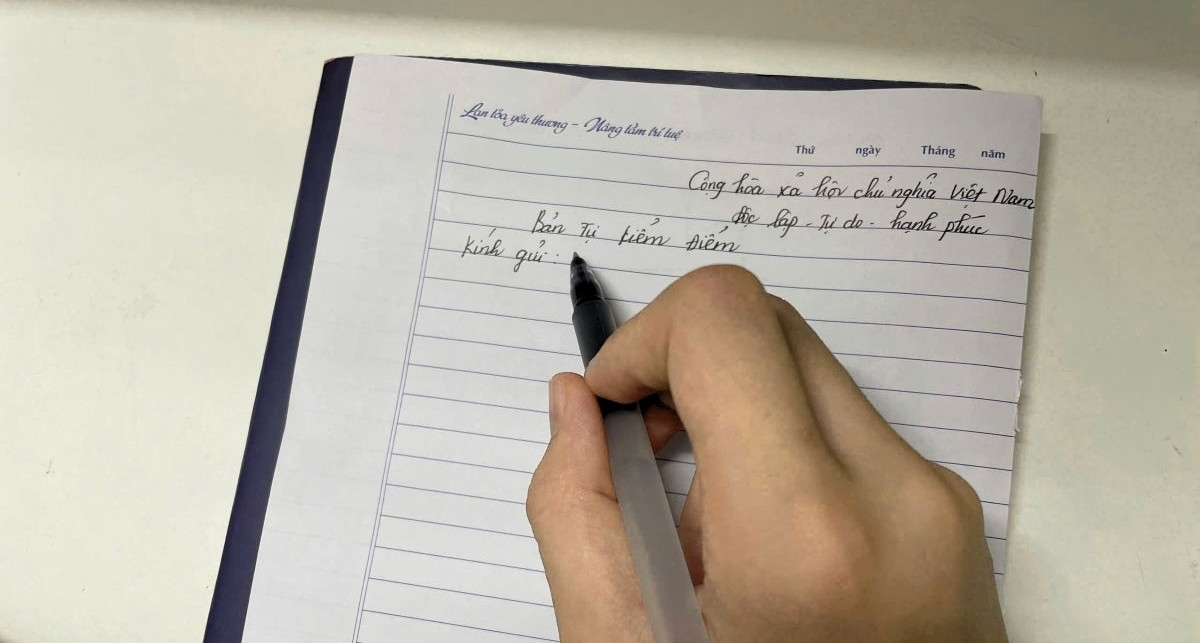 Lan tỏa yêu thương - Nâng tầm trí tuệ
Thứ ngày Tháng năm
Cộng hòa xã hội chủ nghĩa Việt Nam
độc lập - Tự do - hạnh phúc
Bản Tự kiểm điểm
Kính gửi: